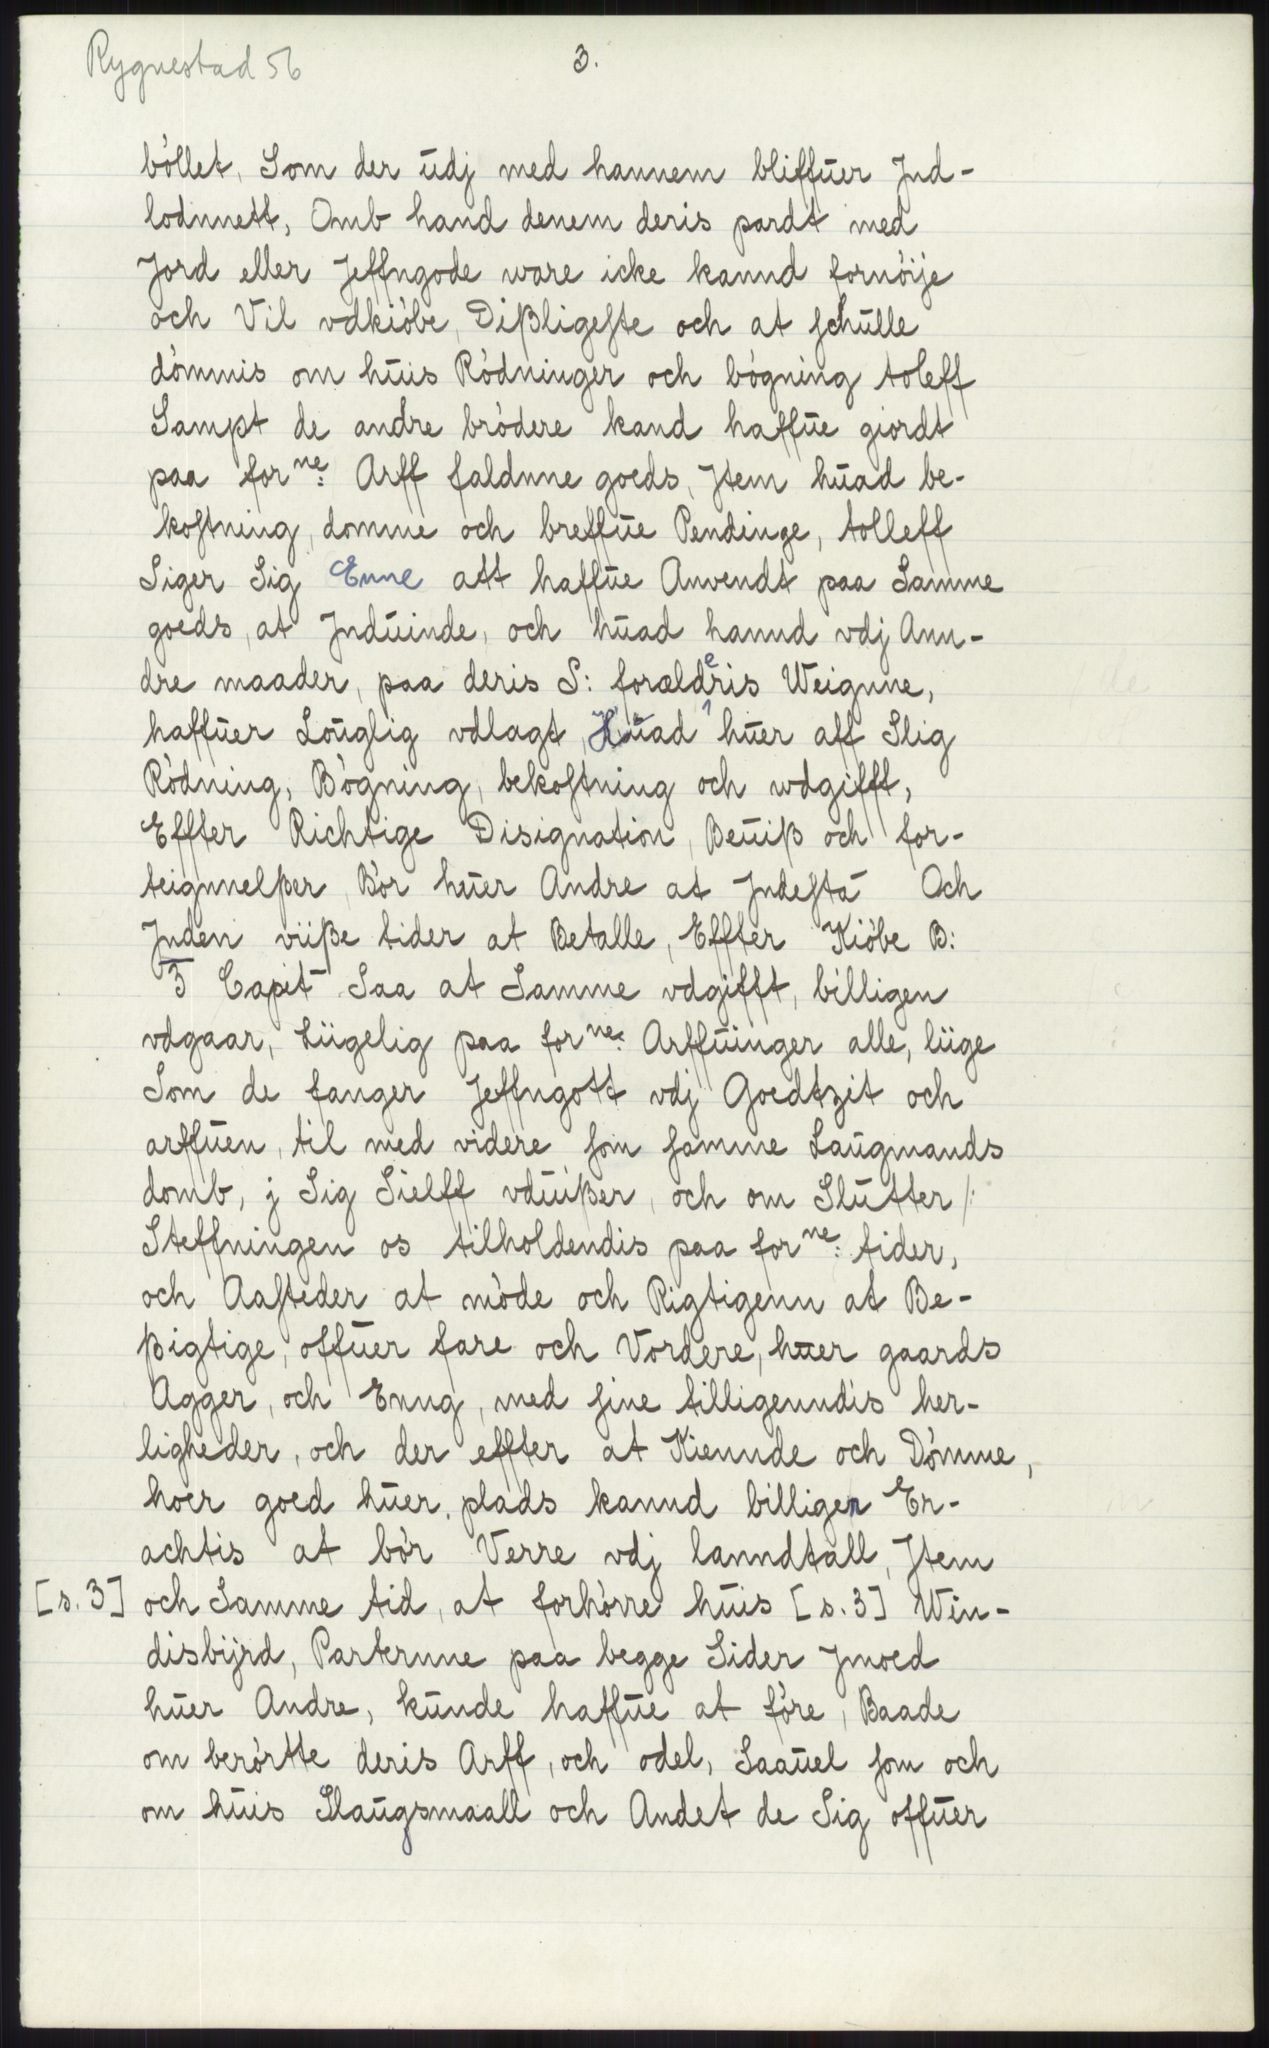 Rygnestad 56
3.
bòllet, Som der ūdj med hannem bliffūer Jnd-
lodnnett, Omb hand denem deris pardt med
Jord eller Jeffngode ware icke kannd fornòije
och Vil vdkiòbe, Dißligeste och at schūlle
dòmmis om hūis Ròdninger och bògning toleff
Sampt de andre bròdere kand haffūe giordt
paa forne: Arff faldnne goeds, Jtem hūad be-
kostning, domme och breffūe Pendinge, tolleff
Siger Sig Enne att haffūe Anvendt paa Samme
goeds, at Jndūinde, och hūad hannd vdj Ann-
dre maader, paa deris S: forælderis Weignne,
haffūer Loūglig vdlagt, Hūad hūer aff Slig
Ròdning, Bògning, bekostning och wdgifft,
Effter Richtige Disignation, Beūiß och for-
teignnelßer, Bòr hūer Andre at Jndestā Och
Jnden viiße tider at Betalle, Effter Kiòbe B:
3 Capit Saa at Samme vdgifft, billigen
vdgaar, Liigelig paa forne: Arffūinger alle, liige
Som de fanger Jeffngott vdj Goedtzit och
arffūen, til med videre som samme Laūgmands
domb, j Sig Sielff vdūißer, och om Slūtter /:
Steffningen os tilholdendis paa forne: tider,
och Aasteder at mòde och Rigtigenn at Be-
ßigtige, offūer fare och Vordere, hūer gaards
Agger, och Enng, med sine tilligenndis her-
ligheder, och der effter at Kiennde och Dòmme,
hoer goed hūer plads kannd billigen Er-
achtis at bòr Verre vdj lanndtall, Jtem
[s. 3] och Samme tid, at forhòrre hūis [s. 3] Win-
disbijrd, Parternne paa begge Sider Jmoed
hūer Andre, kūnde haffūe at fòre, Baade
om beròrtte deris Arff, och odel, Saaūel som och
om hūis Slaūgsmaall och Andet de Sig offūer